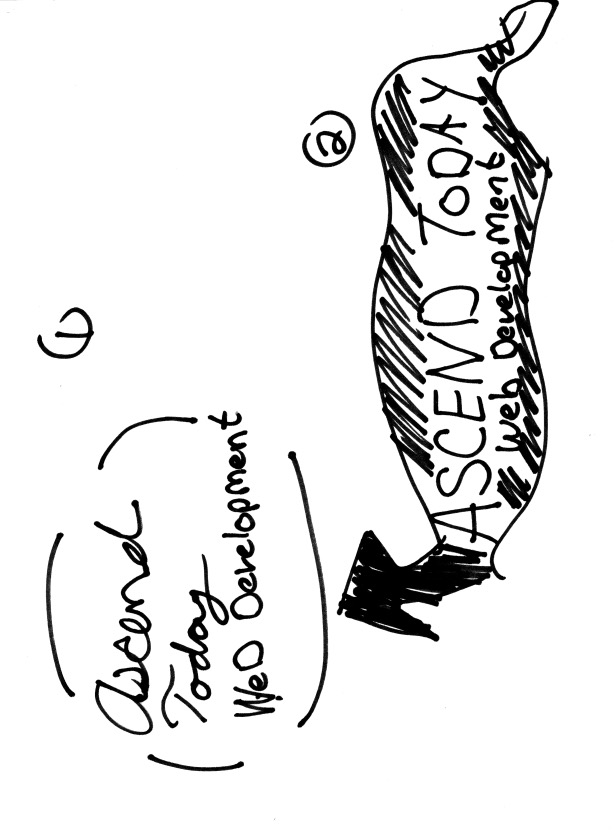 (1)
Ascend
Today
Web Development
(2)
ASCEND TODAY
Web Development